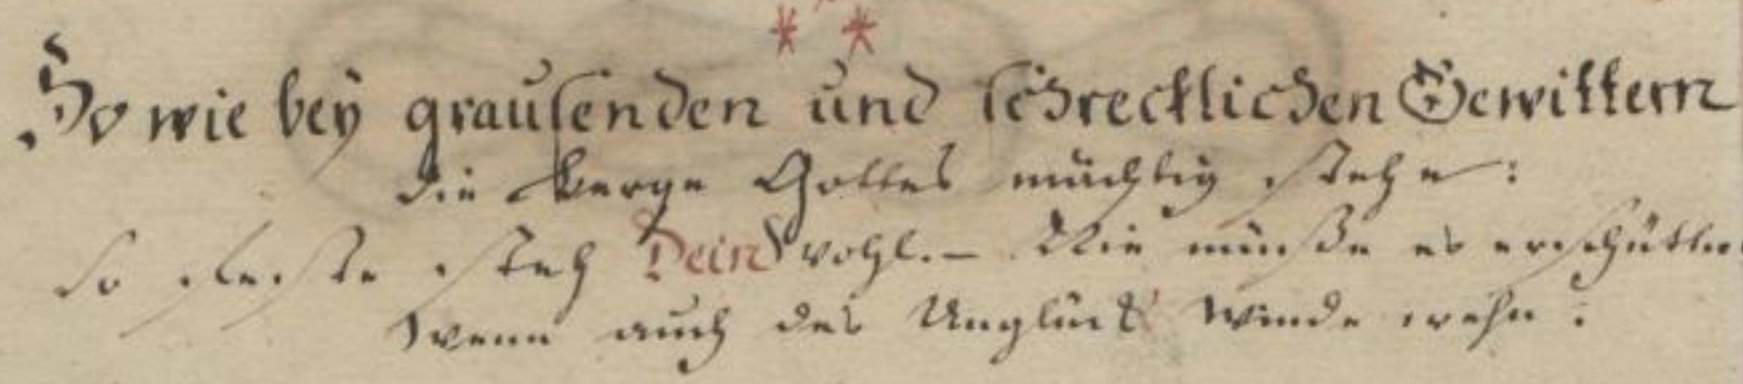 * *
So wie bey grausenden und schrecklichen Gewittern
die Berge Gottes mächtig stehn:
So feste steh Dein wohl. – Nie müße es erschüttern
Wenn auch des Unglücks Winde wehn: